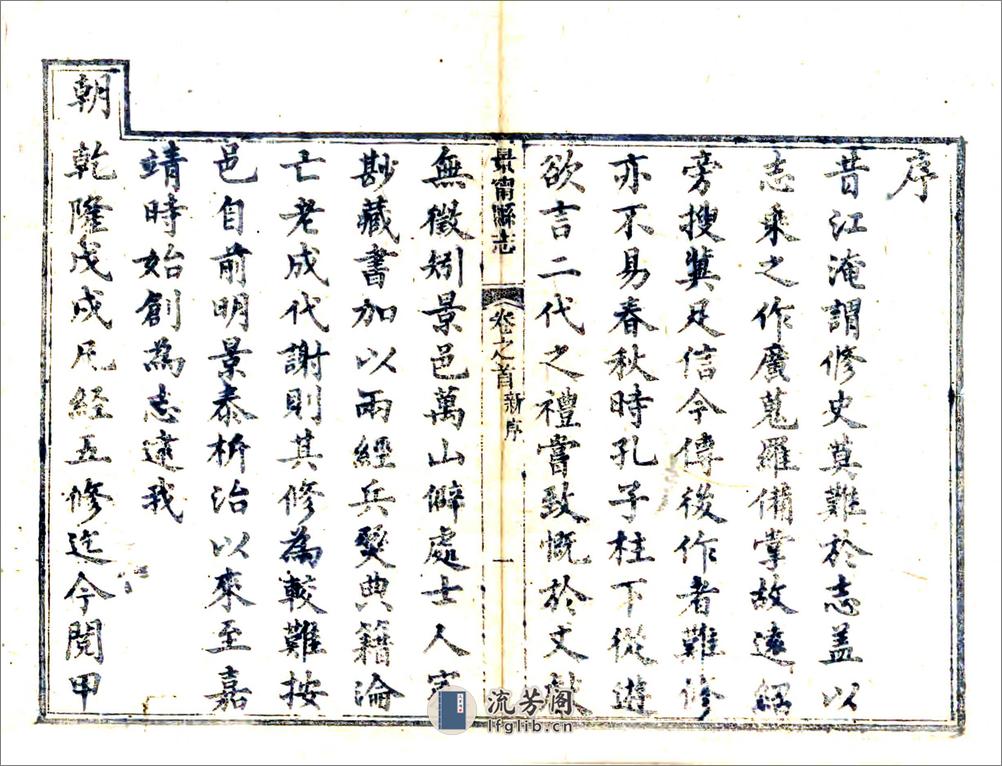 序
昔江淹謂修史莫難於志盖以
志乘之作廣蒐羅備掌故遠紹
旁搜冀足信今傳後作者難修
亦不易春秋時孔子柱下從遊
欲言二代之禮嘗致慨於文獻
景甯縣志
卷之首
新序
一
無徵矧景邑萬山僻處士人
尠藏書加以兩經兵燹典籍淪
亡老成代謝則其修為較難按
邑自前明景泰析治以來至嘉
靖時始創為志逮我
朝乾隆戊戌凡經五修迄今閱甲
流芳阁
lfglib.cn